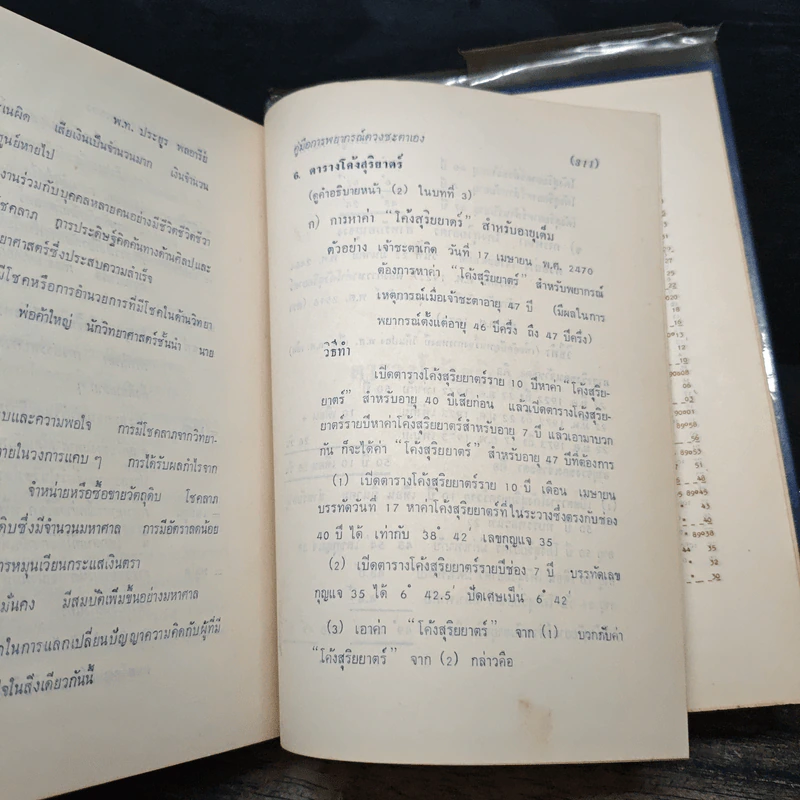 พ.ท. ประยูร พลอารีย์
เสียเงินเป็นจำนวนมาก เงินจำนวน
สูญหายไป
งานร่วมกับบุคคลหลายคนอย่างมีชีวิตชีวา
โชคลาภ การประดิษฐ์คิดค้นทางด้านศิลปและ
ยาศาสตร์ซึ่งประสบความสำเร็จ
มีโชคหรือการอำนวยการที่มีโชคในด้านวิทยา
พ่อค้าใหญ่ นักวิทยาศาสตร์ชั้นนำ นาย
บและความพอใจ การมีโชคลาภจากวิทยา-
ายในวงการแคบ ๆ การได้รับผลกำไรจาก
จำหน่ายหรือซื้อขายวัตถุดิบ โชคลาภ
ดิบซึ่งมีจำนวนมหาศาล การมีอัตราลดน้อย
ารหมุนเวียนกระแสเงินตรา
มั่นคง มีสมบัติเพิ่มขึ้นอย่างมหาศาล
ในการแลกเปลี่ยนปัญญาความคิดกับผู้ที่มี
ใจในสิ่งเดียวกันนี้
คู่มือการพยากรณ์ดวงชะตาเอง
6. ตารางโค้งสุริยาตร์
(ดูคำอธิบายหน้า (2) ในบทที่ 3)
ก) การหาค่า "โค้งสุริยยาตร์" สำหรับอายุเต็ม
ตัวอย่าง เจ้าชะตาเกิด วันที่ 17 เมษายน พ.ศ. 2470
ต้องการหาค่า "โค้งสุริยยาตร์" สำหรับพยากรณ์
เหตุการณ์เมื่อเจ้าชะตาอายุ 47 ปี (มีผลในการ
พยากรณ์ตั้งแต่อายุ 46 ปีครึ่ง ถึง 47 ปีครึ่ง)
วิธีทำ
เปิดตารางโค้งสุริยยาตร์ราย 10 ปีหาค่า "โค้งสุริย-
ยาตร์" สำหรับอายุ 40 ปีเสียก่อน แล้วเปิดตารางโค้งสุริย-
ยาตร์รายปีหาค่าโค้งสุริยยาตร์สำหรับอายุ 7 ปี แล้วเอามาบวก
กัน ก็จะได้ค่า "โค้งสุริยยาตร์" สำหรับอายุ 47 ปีที่ต้องการ
(1) เปิดตารางโค้งสุริยยาตร์ราย 10 ปี เดือน เมษายน
บรรทัดวันที่ 17 หาค่าโค้งสุริยยาตร์ที่ในระวางซึ่งตรงกับช่อง
40 ปี ได้ เท่ากับ 38° 42' เลขกุญแจ 35
(2) เปิดตารางโค้งสุริยยาตร์รายปีช่อง 7 ปี บรรทัดเลข
กุญแจ 35 ได้ 6° 42.5' ปัดเศษเป็น 6° 42'
(3) เอาค่า "โค้งสุริยยาตร์" จาก (1) บวกกับค่า
"โค้งสุริยยาตร์" จาก (2) กล่าวคือ